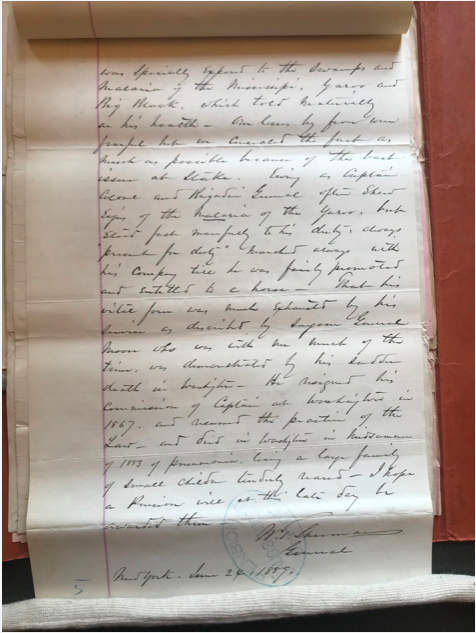 was specially exposed to the swamps and
Malaria of the Mississippi, Yazoo and
Big Black, which told materially
on his health - Our losses by fever were
but we concealed the fact as
much as possible because of the vast
issue at Stake. Ewing as Captain
Colonel and Brigadier General often Shew
Signs of the Malaria of the Yazoo, but
Stood fast manfully to his duty, always
"present for duty" Marched always with
his Company till he was fairly promoted
and entitled to a horse - That his
vital force was much exhausted by his
Service as described by Surgeon General
Moore who was with me much of the
time, was demonstrated by his sudden
death in Washington - He resigned his
Commission of Captain at Washington in
1867, and resumed the practice of the
Law - and died in Washington in Midsummer
of 1883 of pneumonia, leaving a large family
of Small Children tenderly reared - I hope
a Pension will at this late day be
awarded them
W. T. Sherman
General
New York, June 24, 1889.